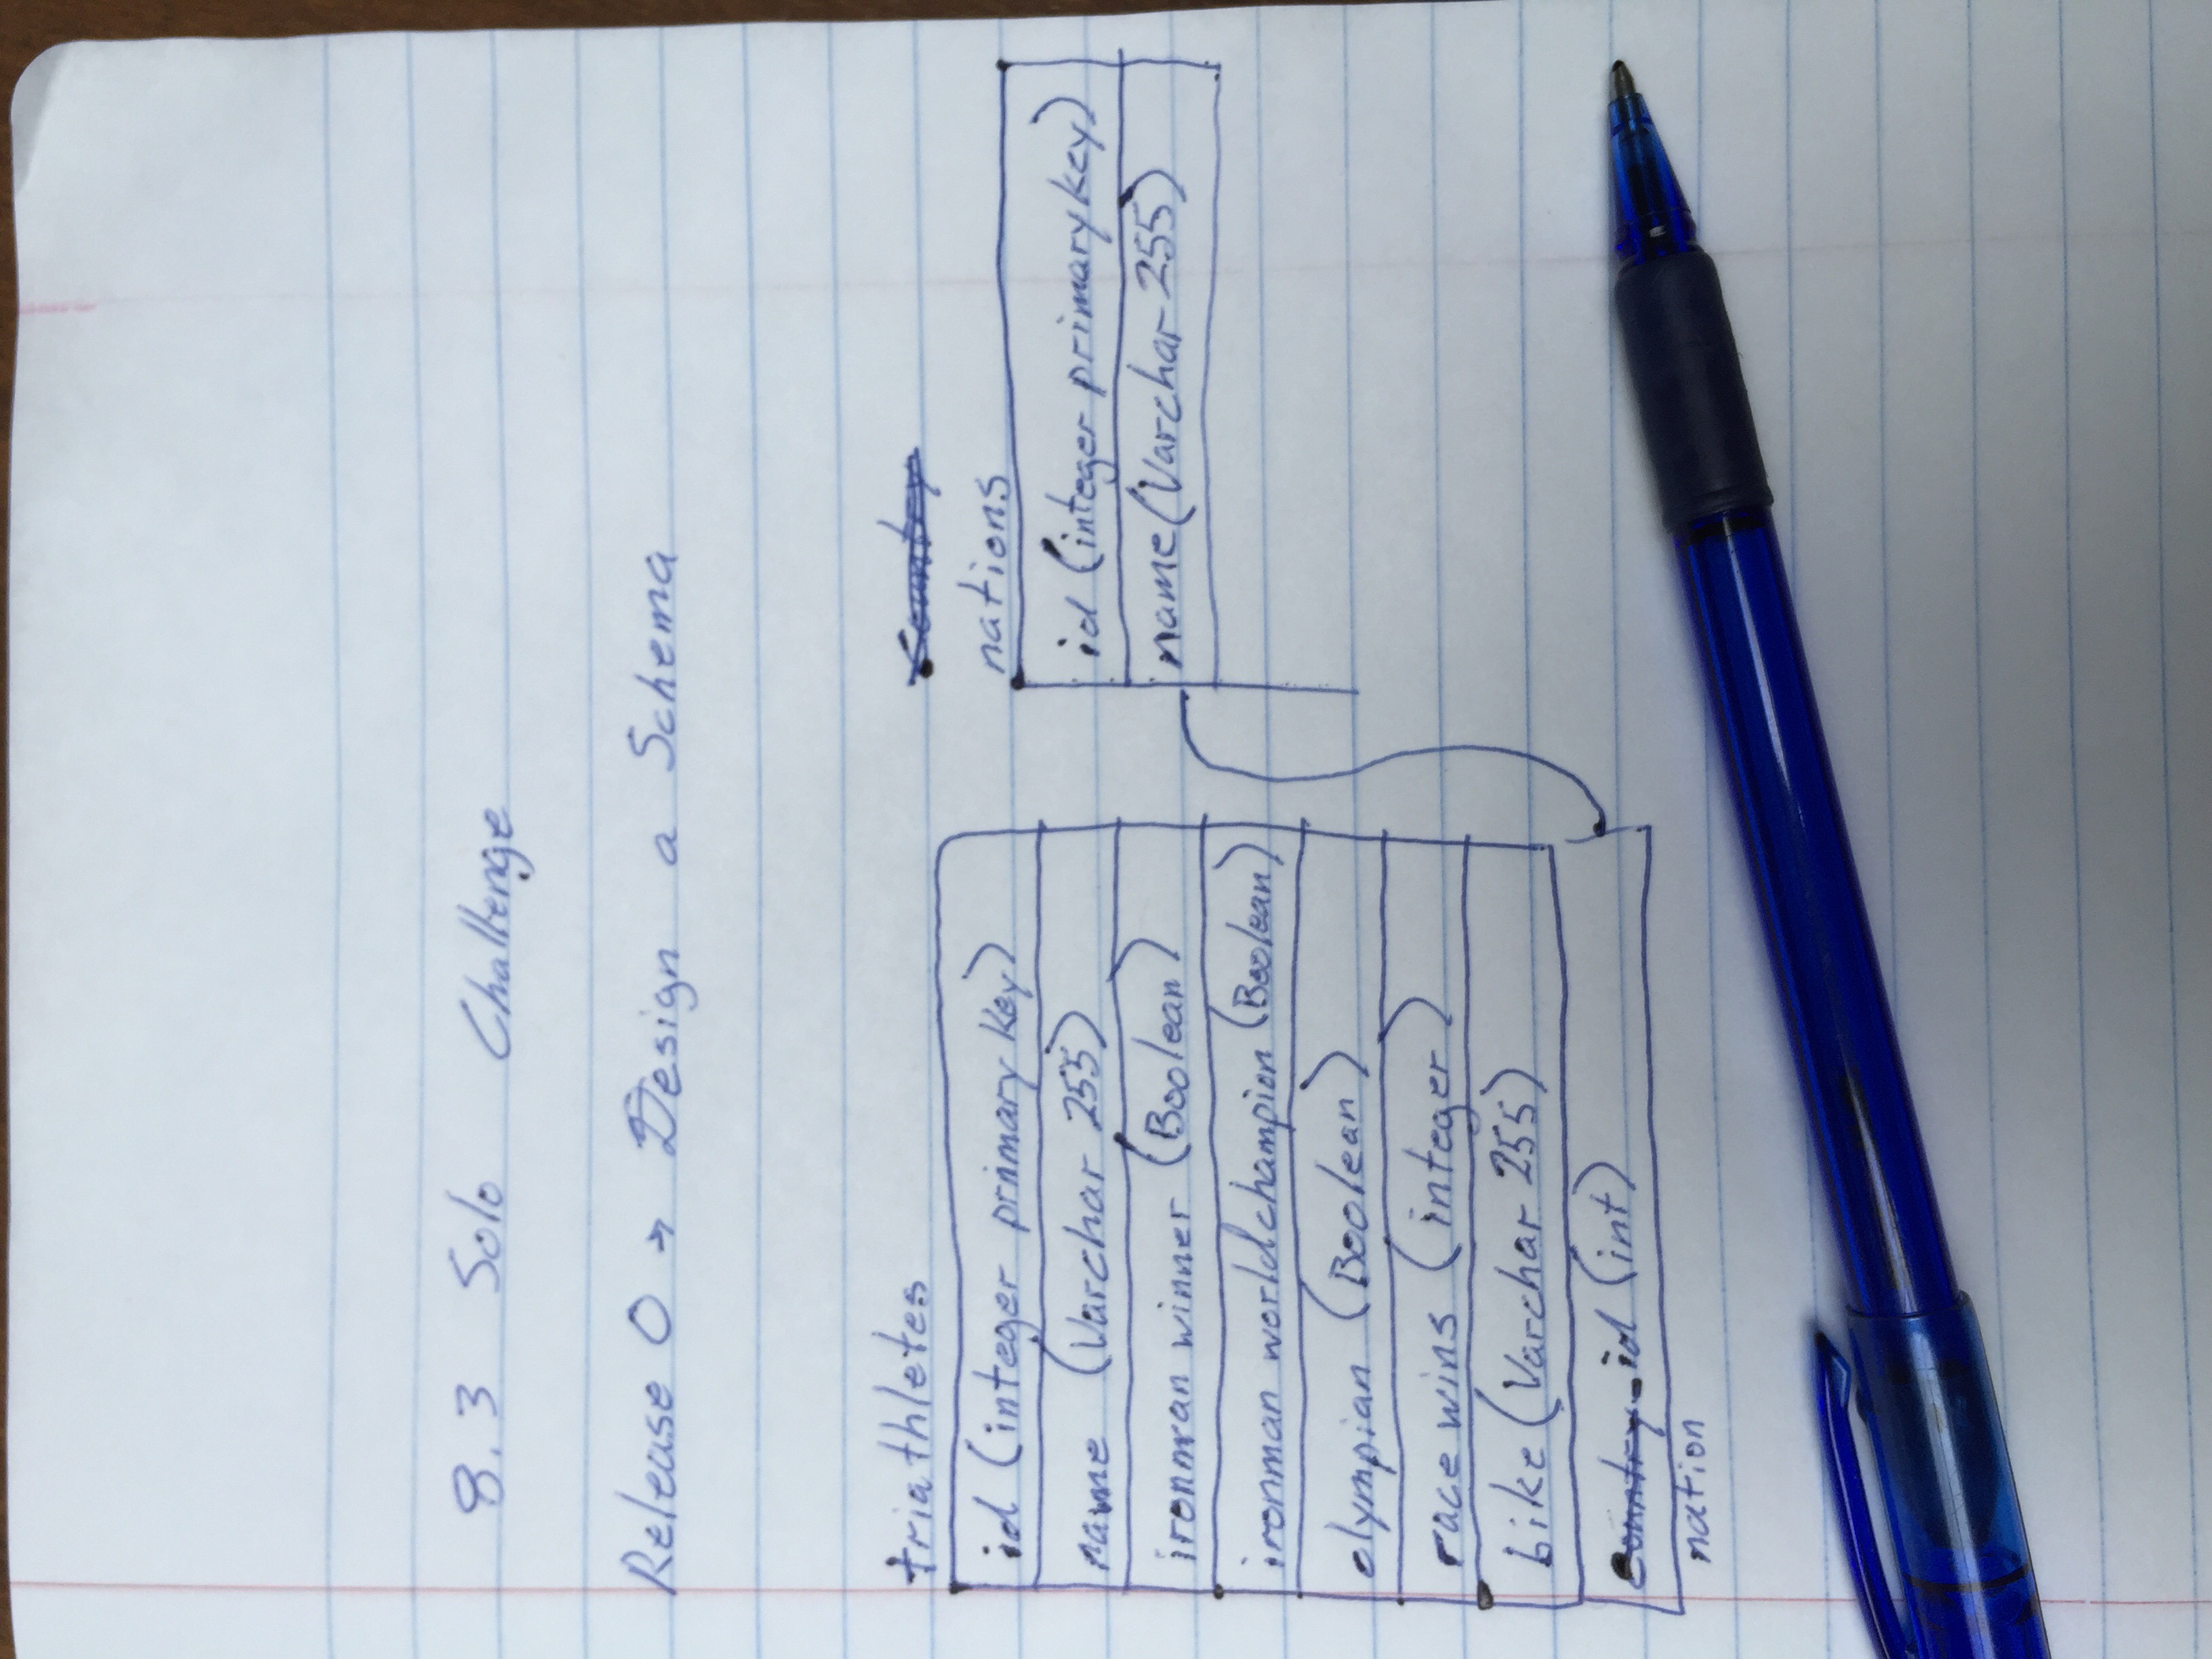 8.3 Solo Challenge
Release 0 → Design a Schema
triathletes
id (integer primary key)
name (Varchar 255)
ironman winner (Boolean)
ironman world champion (Boolean)
olympian (Boolean)
race wins (integer)
bike (Varchar 255)
country_id (int)
nation
country
nations
id (integer primary key)
name (Varchar 255)